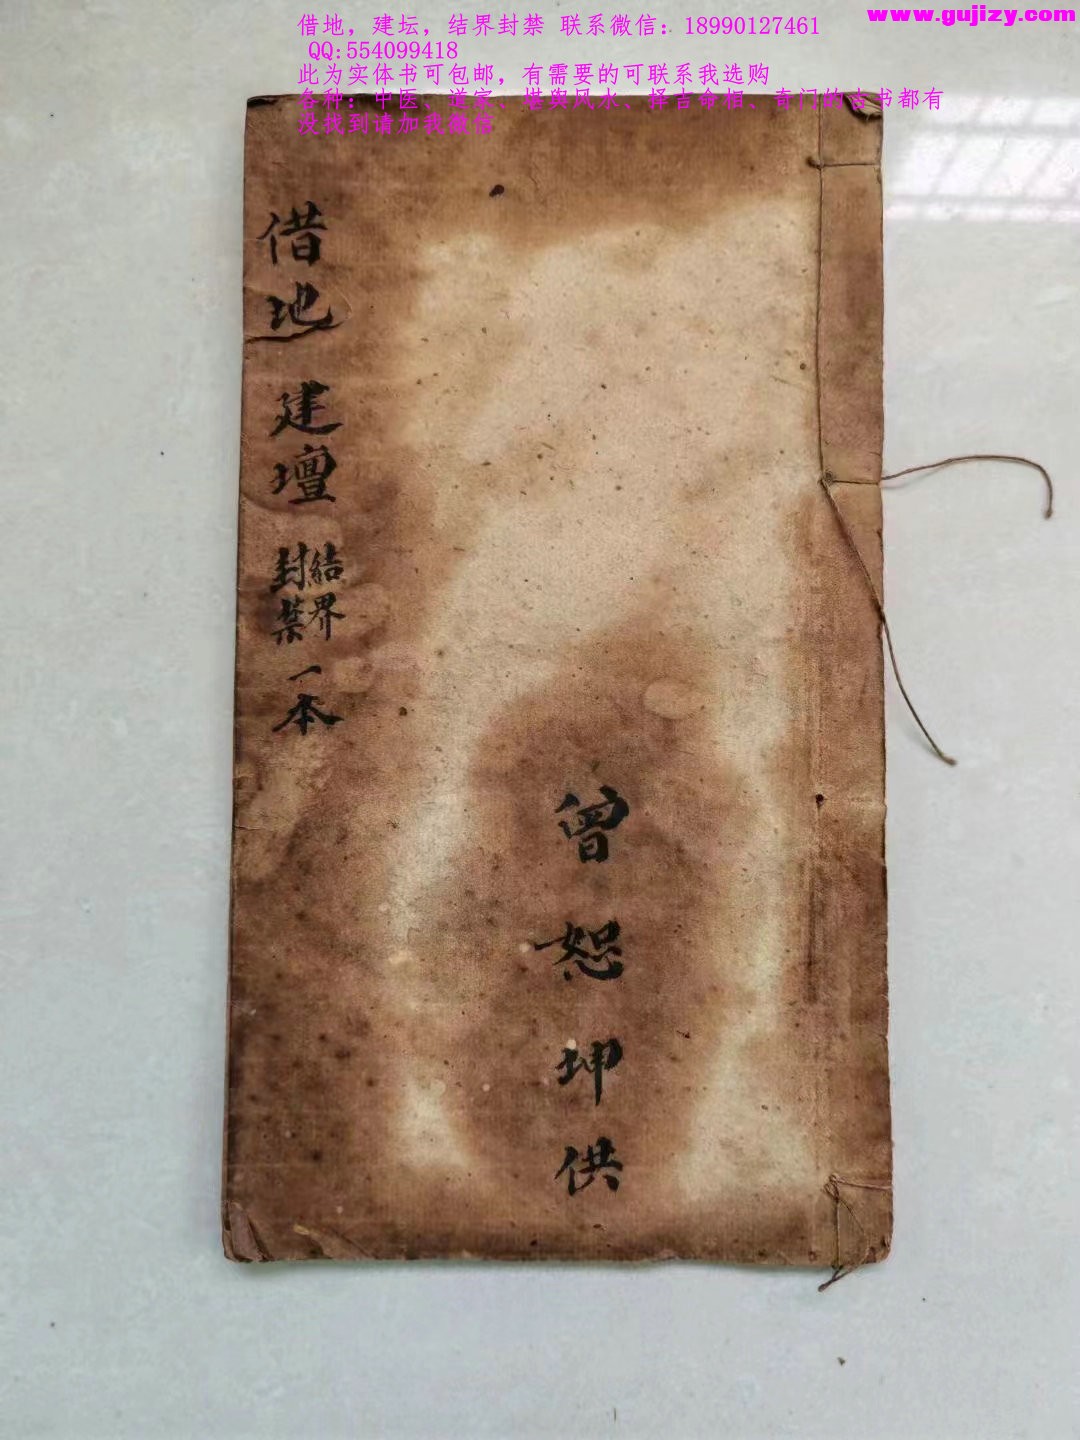 借地，建坛，结界封禁 联系微信：18990127461
www.gujizy.com
QQ:554099418
此为实体书可包邮，有需要的可联系我选购
各种：中医、道家、堪舆风水、择吉命相、奇门的古书都有
没找到请加我微信
借地 建壇 結界封禁 一本
曾恕坤供